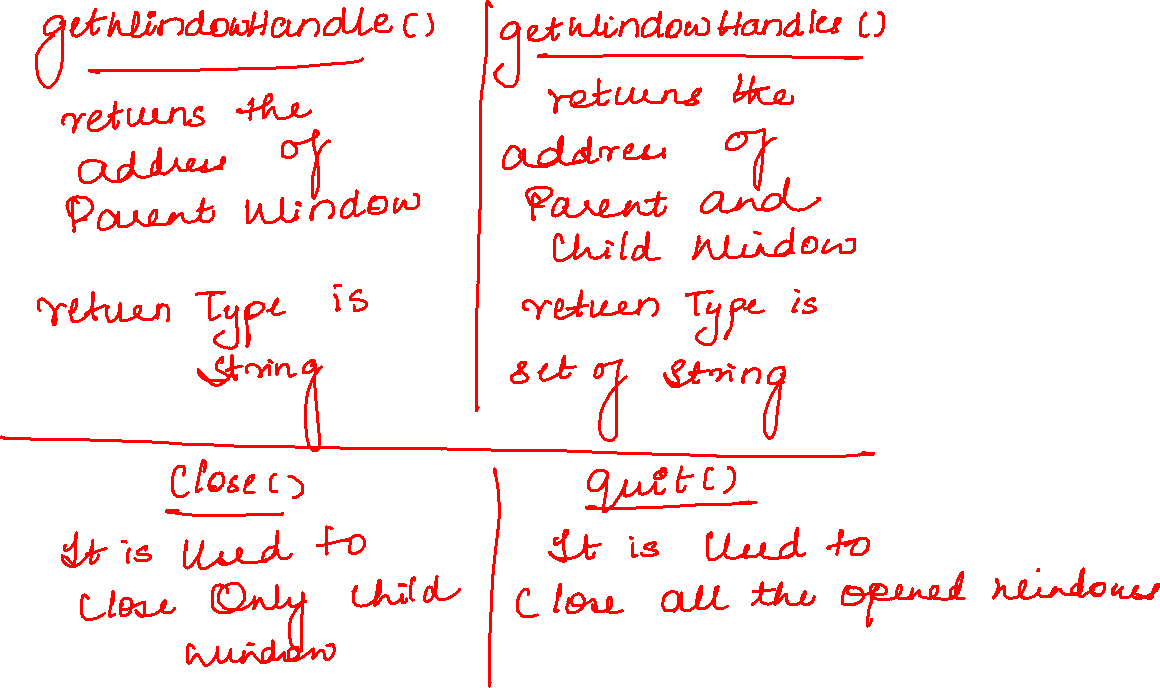 getWindowHandle()
returns the
address of
Parent Window
return Type is
String
getWindowHandles()
returns the
address of
Parent and
Child Window
return Type is
set of String
Close()
It is Used to
Close Only child
window
quit()
It is Used to
Close all the opened windows